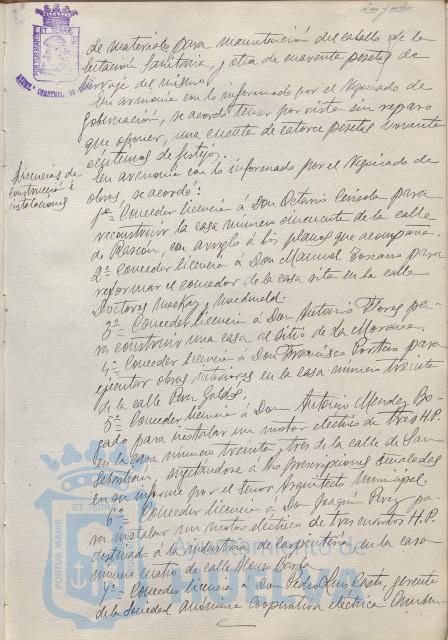 de materiales para manutención del caballo de la
Estación Sanitaria, y otra de cuarenta pesetas de
herraje del mismo.
En armonía con lo informado por el Negociado de
Gobernación, se acordó tener por vista sin reparo
que oponer, una cuenta de catorce pesetas noventa
céntimos de festejos.
Licencias de
construcción é
instalaciones
En armonía con lo informado por el Negociado de
obras, se acordó:
1º= Conceder licencia á Don Octavio para
reconstruir la casa número cincuenta de la calle
de Rascón, con arreglo á los planos que acompaña.
2º= Conceder licencia á Don Manuel Toscano para
reformar el comedor de la casa sita en la calle
Doctores Mackay y Macdonald.
3º= Conceder licencia á Don Antonio Flores pa-
ra construir una casa al sitio de La Morana.
4º= Conceder licencia á Don Francisco para
ejecutar obras interiores en la casa número treinta
de la calle Perez Galdós.
5º= Conceder licencia á Don Antonio Mendez Bo-
gado para instalar un motor electrico de tres H.P.
en la casa número treinta y tres de la calle de San
Sebastian, sujetandose á las prescripciones señaladas
en su informe por el Señor Arquitecto Municipal.
6º= Conceder licencia á Don Joaquin Perez pa-
ra instalar un motor electrico de tres cuartos H.P.
destinado á la industria de carpintería en la casa
número cuatro de calle Alonso Barba.
7º= Conceder licencia á Don Pedro Luis Casto, gerente
de la Sociedad Anónima Cooperativa electrica Onuben
PORTUS MARIS ET TERRE
Ayuntamiento de
HUELVA